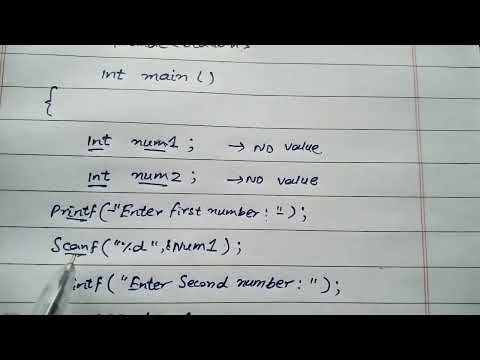 int main ()
{
int num1 ; → NO value
int num2 ; → NO value
Printf("Enter first number : ");
Scanf("%d",&Num1);
Printf("Enter Second number : ");